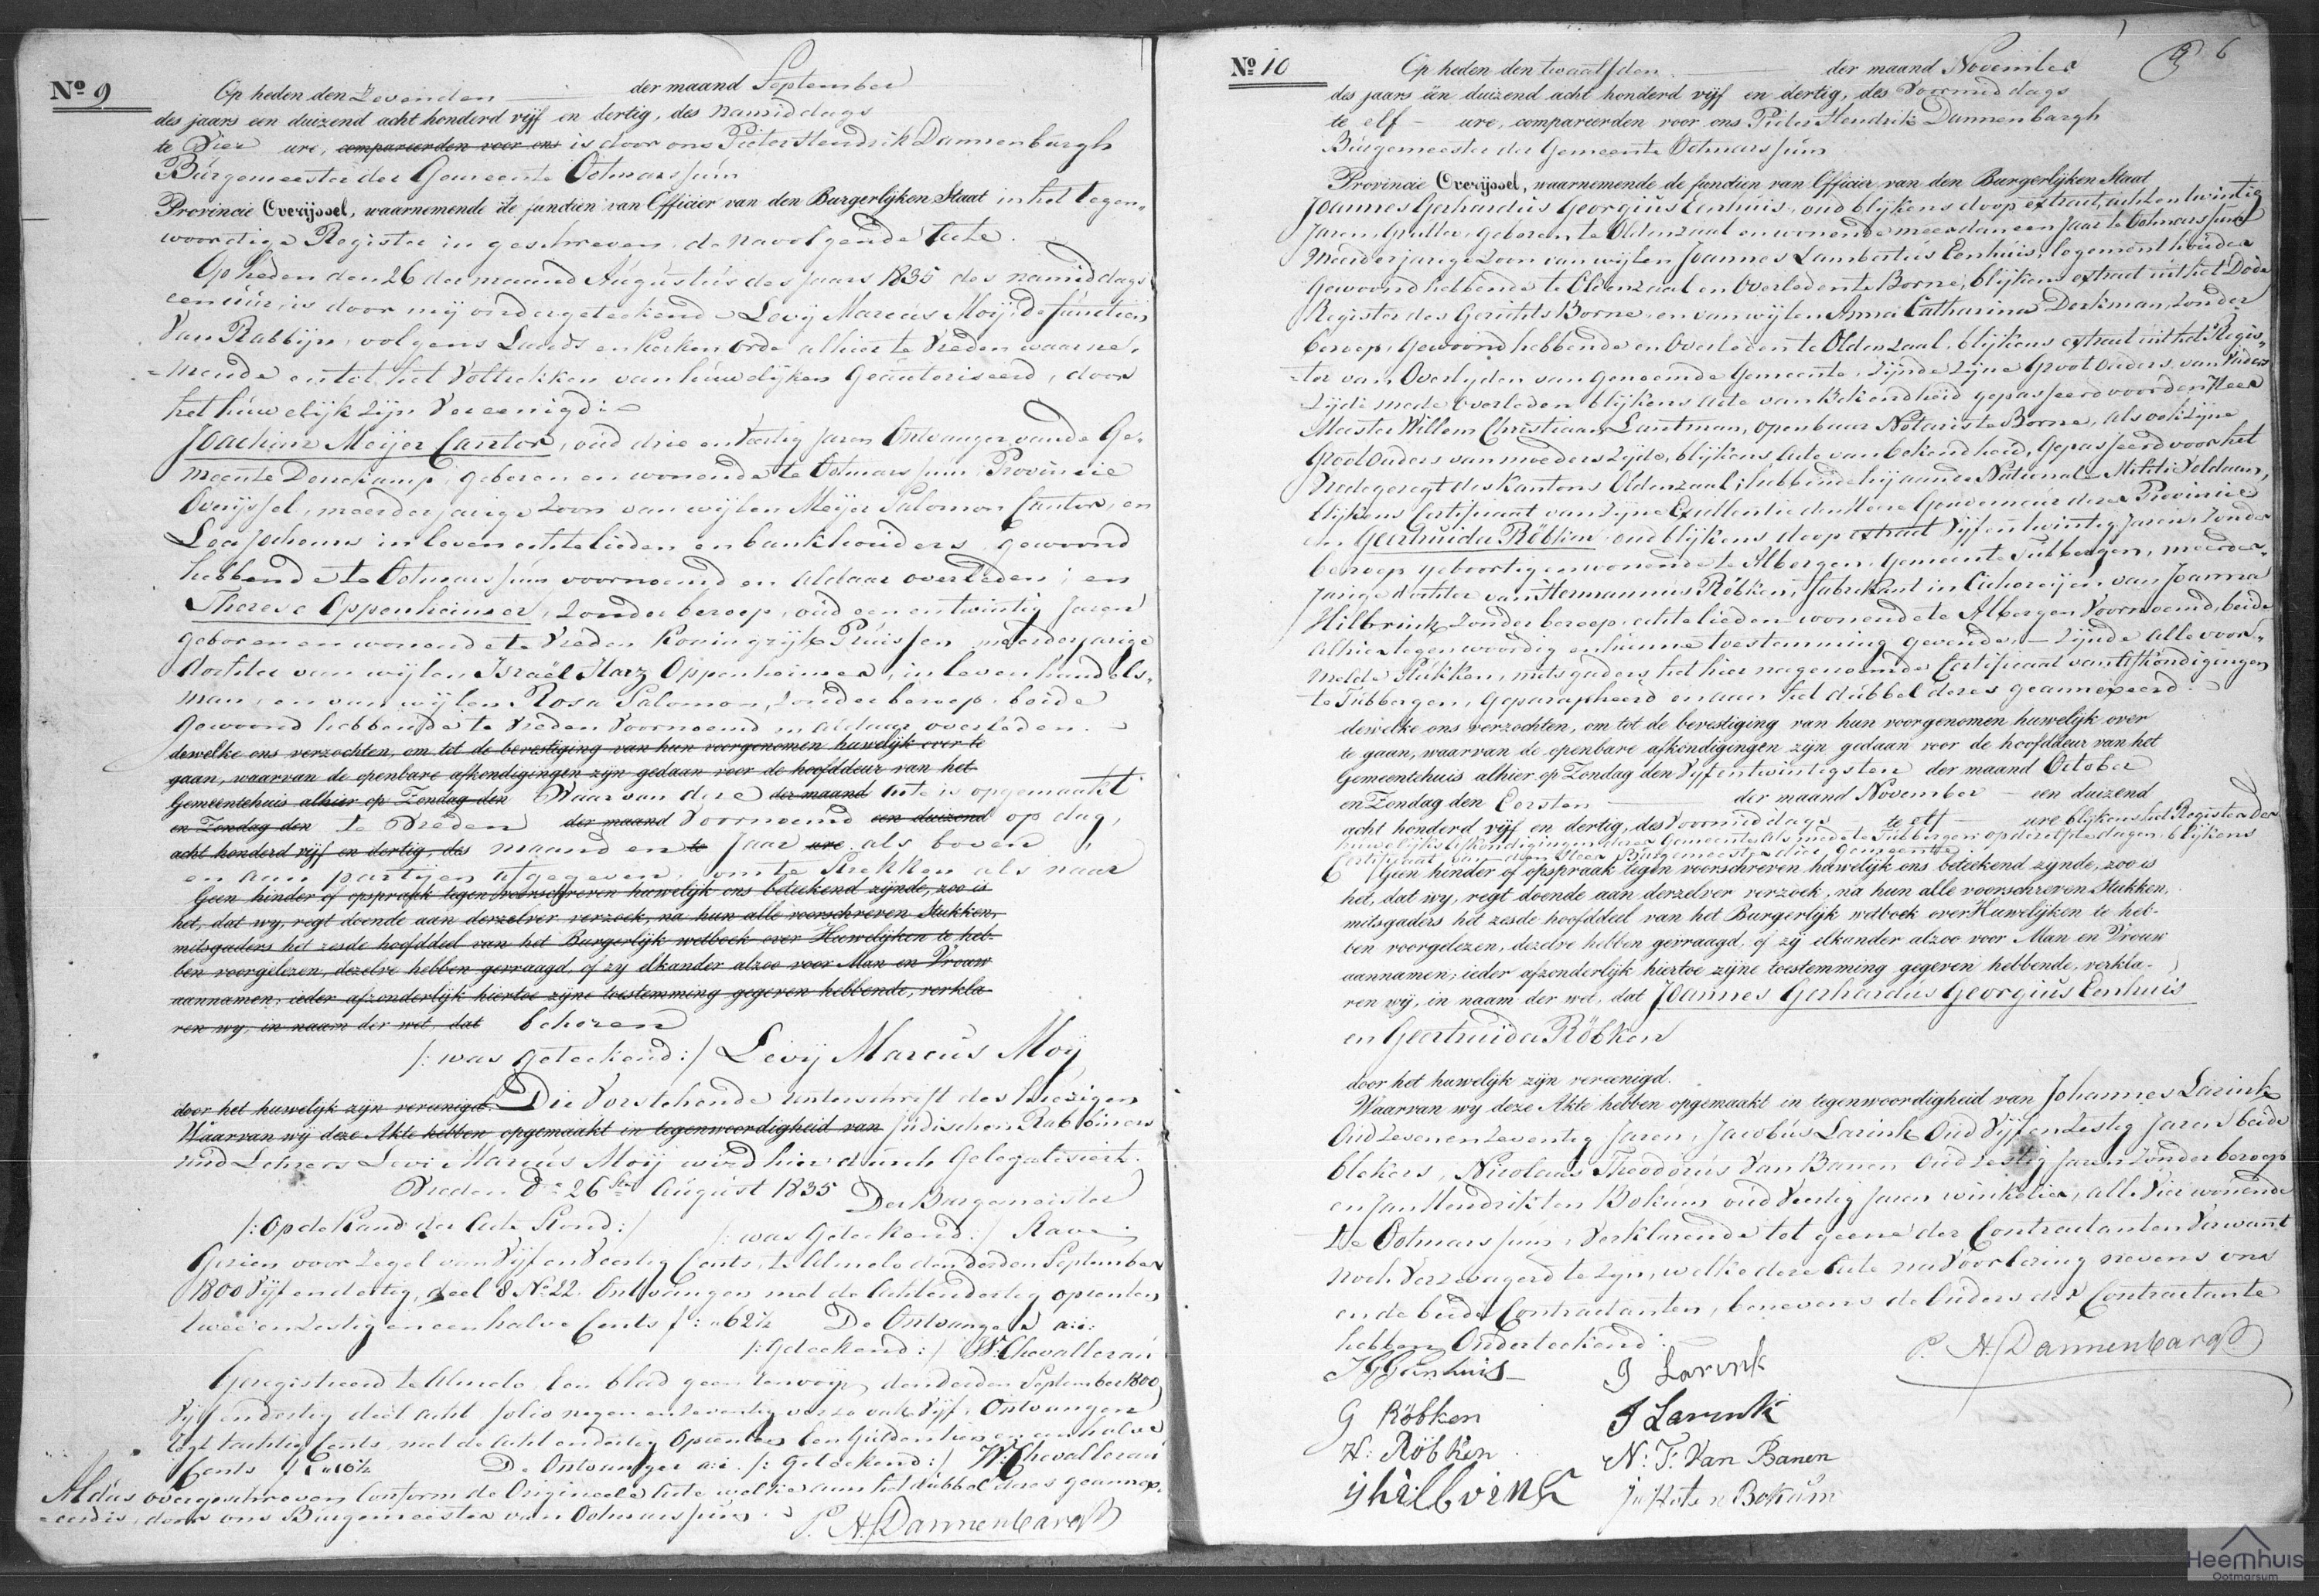 Nº 9
Op heden den Zevenden der maand September
des jaars een duizend acht honderd vijf en dertig, des namiddags
te Vier ure, compareerden voor ons is door ons Pieter Hendrik Dannenbargh
Burgemeester der Gemeente Ootmarssum
Provincie Overijssel, waarnemende de functien van Officier van den Burgerlijken Staat in het tegen-
woordige Register in geschreven de navolgende Acte.
Op heden den 26 der maand Augustus des Jaars 1835 des namiddags
een uur, is door mij ondergeteekende Levij Marcus Moij, de functien
van Rabbijn, volgens Lands en Kerken Orde alhier te Vreden waarne-
mende en tot het Voltrekken van huwelijken Geauctoriseerd, door
het huwelijk zijn Vereenigd:
Joachim Meijer Cantor, oud drie en Veertig Jaren Ontvanger van de Ge-
meente Denekamp, geboren en wonende te Ootmarssum Provincie
Overijssel, meerderjarige Zoon van wijlen Meijer Salomon Cantor, en
Lea Jochems in leven echtelieden en bankhouders, gewoond
hebbende te Ootmarssum voornoemd en aldaar overleden; en
Therese Oppenheimer, zonder beroep, oud een en twintig Jaren
geboren en wonende te Vreden Koningrijk Pruissen, meerderjarige
dochter van wijlen Israël Harz Oppenheimer, in leven handels-
man, en van wijlen Rosa Salomon, zonder beroep, beide
gewoond hebbende te Vreden Voornoemd en aldaar overleden.
dewelke ons verzochten, om tot de bevestiging van hun voorgenomen huwelijk over te
gaan, waarvan de openbare afkondigingen zijn gedaan voor de hoofddeur van het
Gemeentehuis alhier op Zondag den Waarvan deze der maand Acte is opgemaakt
en Zondag den te Vreden der maand Voornoemd een duizend op dag,
acht honderd vijf en dertig, des maand en te Jaar ure als boven
en aan partijen afgegeven, om te Strekken als naar
Geen hinder of opspraak tegen voorschreven huwelijk ons beteekend zijnde, zoo is
het, dat wij, regt doende aan derzelver verzoek, na hun alle voorschreven Stukken,
mitsgaders het zesde hoofddeel van het Burgerlijk wetboek over Huwelijken te heb-
ben voorgelezen, dezelve hebben gevraagd, of zij elkander alzoo voor Man en Vrouw
aannamen; ieder afzonderlijk hiertoe zijne toestemming gegeven hebbende, verkla-
ren wij, in naam der wet, dat behoren
/: was geteekend :/ Levij Marcus Moij
door het huwelijk zijn vereenigd. Die Vorstehende Unterschrift des hiesigen
Waarvan wij deze Akte hebben opgemaakt in tegenwoordigheid van Judischen Rabbiners
und Lehrers Levi Marcus Moij wird hierdurch Gelegalisiert.
Vreden d. 26sten August 1835 Der Burgemeister
/: Op de Kand der Acte Stond :/ /: was Geteekend :/ Rave
Gezien voor Zegel van Vijf en Veertig Cents, te Almelo den derden September
1800 Vijf en dertig, deel 8 No 22. Ontvangen met de Achtendertig opcenten
twee en Zestig en een halve Cents f : „62½ De Ontvanger a:i:
/: Geteekend :/ W. Chevallerau
Geregistreerd te Almelo, Een blad geen renvoijen den derden September 1800
Vijf en dertig deel acht folio negen en Zeventig verso vak Vijf. Ontvangen
tachtig Cents, met de acht en dertig Opcenten Een Gulden tien en een halve
Cents f 1„10½ De Ontvanger a:i. /: Geteekend :/ W. Chevallerau
Aldus overgeschreven Conform de Origineele Acte welke aan het dubbel dezes geannex-
eerd is, door ons Burgemeester van Ootmarssum.
P. H. Dannenbargh
Nº 10
6
Op heden den twaalfden der maand November
des jaars één duizend acht honderd vijf en dertig, des Voormiddags
te elf ure, compareerden voor ons Pieter Hendrik Dannenbargh
Burgemeester der Gemeente Ootmarssum
Provincie Overijssel, waarnemende de functien van Officier van den Burgerlijken Staat
Joannes Gerhardus Georgius Eenhuis, oud blijkens doop extract, acht en twintig
Jaren, geboren te Oldenzaal en wonende meer dan een Jaar te Ootmarssum,
Meerderjarige Zoon van wijlen Joannes Lambertus Eenhuis, logementhouder
Gewoond hebbende te Oldenzaal en Overleden te Borne, blijkens extract uit het Dode
Register des Gerichts Borne, en van wijlen Anna Catharina Derkman, zonder
beroep, gewoond hebbende en Overleden te Oldenzaal, blijkens extract uit het Regis-
ter van Overlyden van genoemde Gemeente, zijnde zijne Groot Ouders van Vaders
Zijde mede overleden blijkens acte van Bekendheid gepasseerd voor den Heer
Meester Willem Christiaan Lantman, openbaar Notaris te Borne, als ook zijne
Groot Ouders van moeders zijde, blijkens Acte van bekendheid, gepasseerd voor het
Vredegeregt des Kantons Oldenzaal; hebbende hij aan de Nationale Militie Voldaan,
blijkens Certificaat van Zijne Excellentie den Heere Gouverneur dezer Provincie
en Geertruida Röbken oud blijkens doop extract Vijf en twintig Jaren, zonder
beroep geboortig en wonende te Albergen Gemeente Tubbergen, meerder-
jarige dochter van Hermannus Röbken, fabrikant in Cichoreijen, van Joanna
Hilbrink zonder beroep, echtelieden wonende te Albergen Voornoemd, beide
alhier tegenwoordig en hunne toestemming gevende, zijnde alle voor-
melde Stukken, mitsgaders het hier nagenoemde Certificaat van afkondigingen
te Tubbergen, geparapheerd en aan het dubbel dezes geannexeerd.
dewelke ons verzochten, om tot de bevestiging van hun voorgenomen huwelijk over
te gaan, waarvan de openbare afkondigingen zijn gedaan voor de hoofddeur van het
Gemeentehuis alhier op Zondag den Vyfentwintigsten der maand October
en Zondag den Eersten der maand November een duizend
acht honderd vijf en dertig, des Voormiddags te elf ure blijkens het Register der
huwelijks afkondigingen dezer Gemeente als mede te Tubbergen op dezelfde dagen, blijkens
Certificaat van den Heer Burgemeester dier Gemeente
Geen hinder of opspraak tegen voorschreven huwelijk ons beteekend zijnde, zoo is
het, dat wy, regt doende aan derzelver verzoek, na hun alle voorschreven Stukken,
mitsgaders het zesde hoofddeel van het Burgerlijk wetboek over Huwelijken te heb-
ben voorgelezen, dezelve hebben gevraagd, of zij elkander alzoo voor Man en Vrouw
aannamen; ieder afzonderlijk hiertoe zijne toestemming gegeven hebbende, verkla-
ren wij, in naam der wet, dat Joannes Gerhardus Georgius Eenhuis
en Geertruida Röbken
door het huwelijk zijn vereenigd.
Waarvan wy deze Akte hebben opgemaakt in tegenwoordigheid van Johannes Larink
Oud Zeven en Zeventig Jaren, Jacobus Larink Oud Vijf en Zestig Jaren beide
blekers, Nicolaas Theodorus Van Banen oud Zestig Jaren zonder beroep
en Jan Hendrik ten Bokum oud Veertig Jaren winkelier, alle Vier wonende
te Ootmarssum, Verklarende tot geene der Contractanten Verwant
noch Verzwagerd te zijn, welke deze Acte na Voorlezing nevens ons
en de beide Contractanten, benevens de Ouders der Contractante
hebben Onderteekend.
P. H. Dannenbargh
J G G Eenhuis
J Larink
G Röbken
J Larink
H: Röbken
N. T. Van Banen
j hilbrink
J H ten Bokum
Heemhuis
Ootmarsum